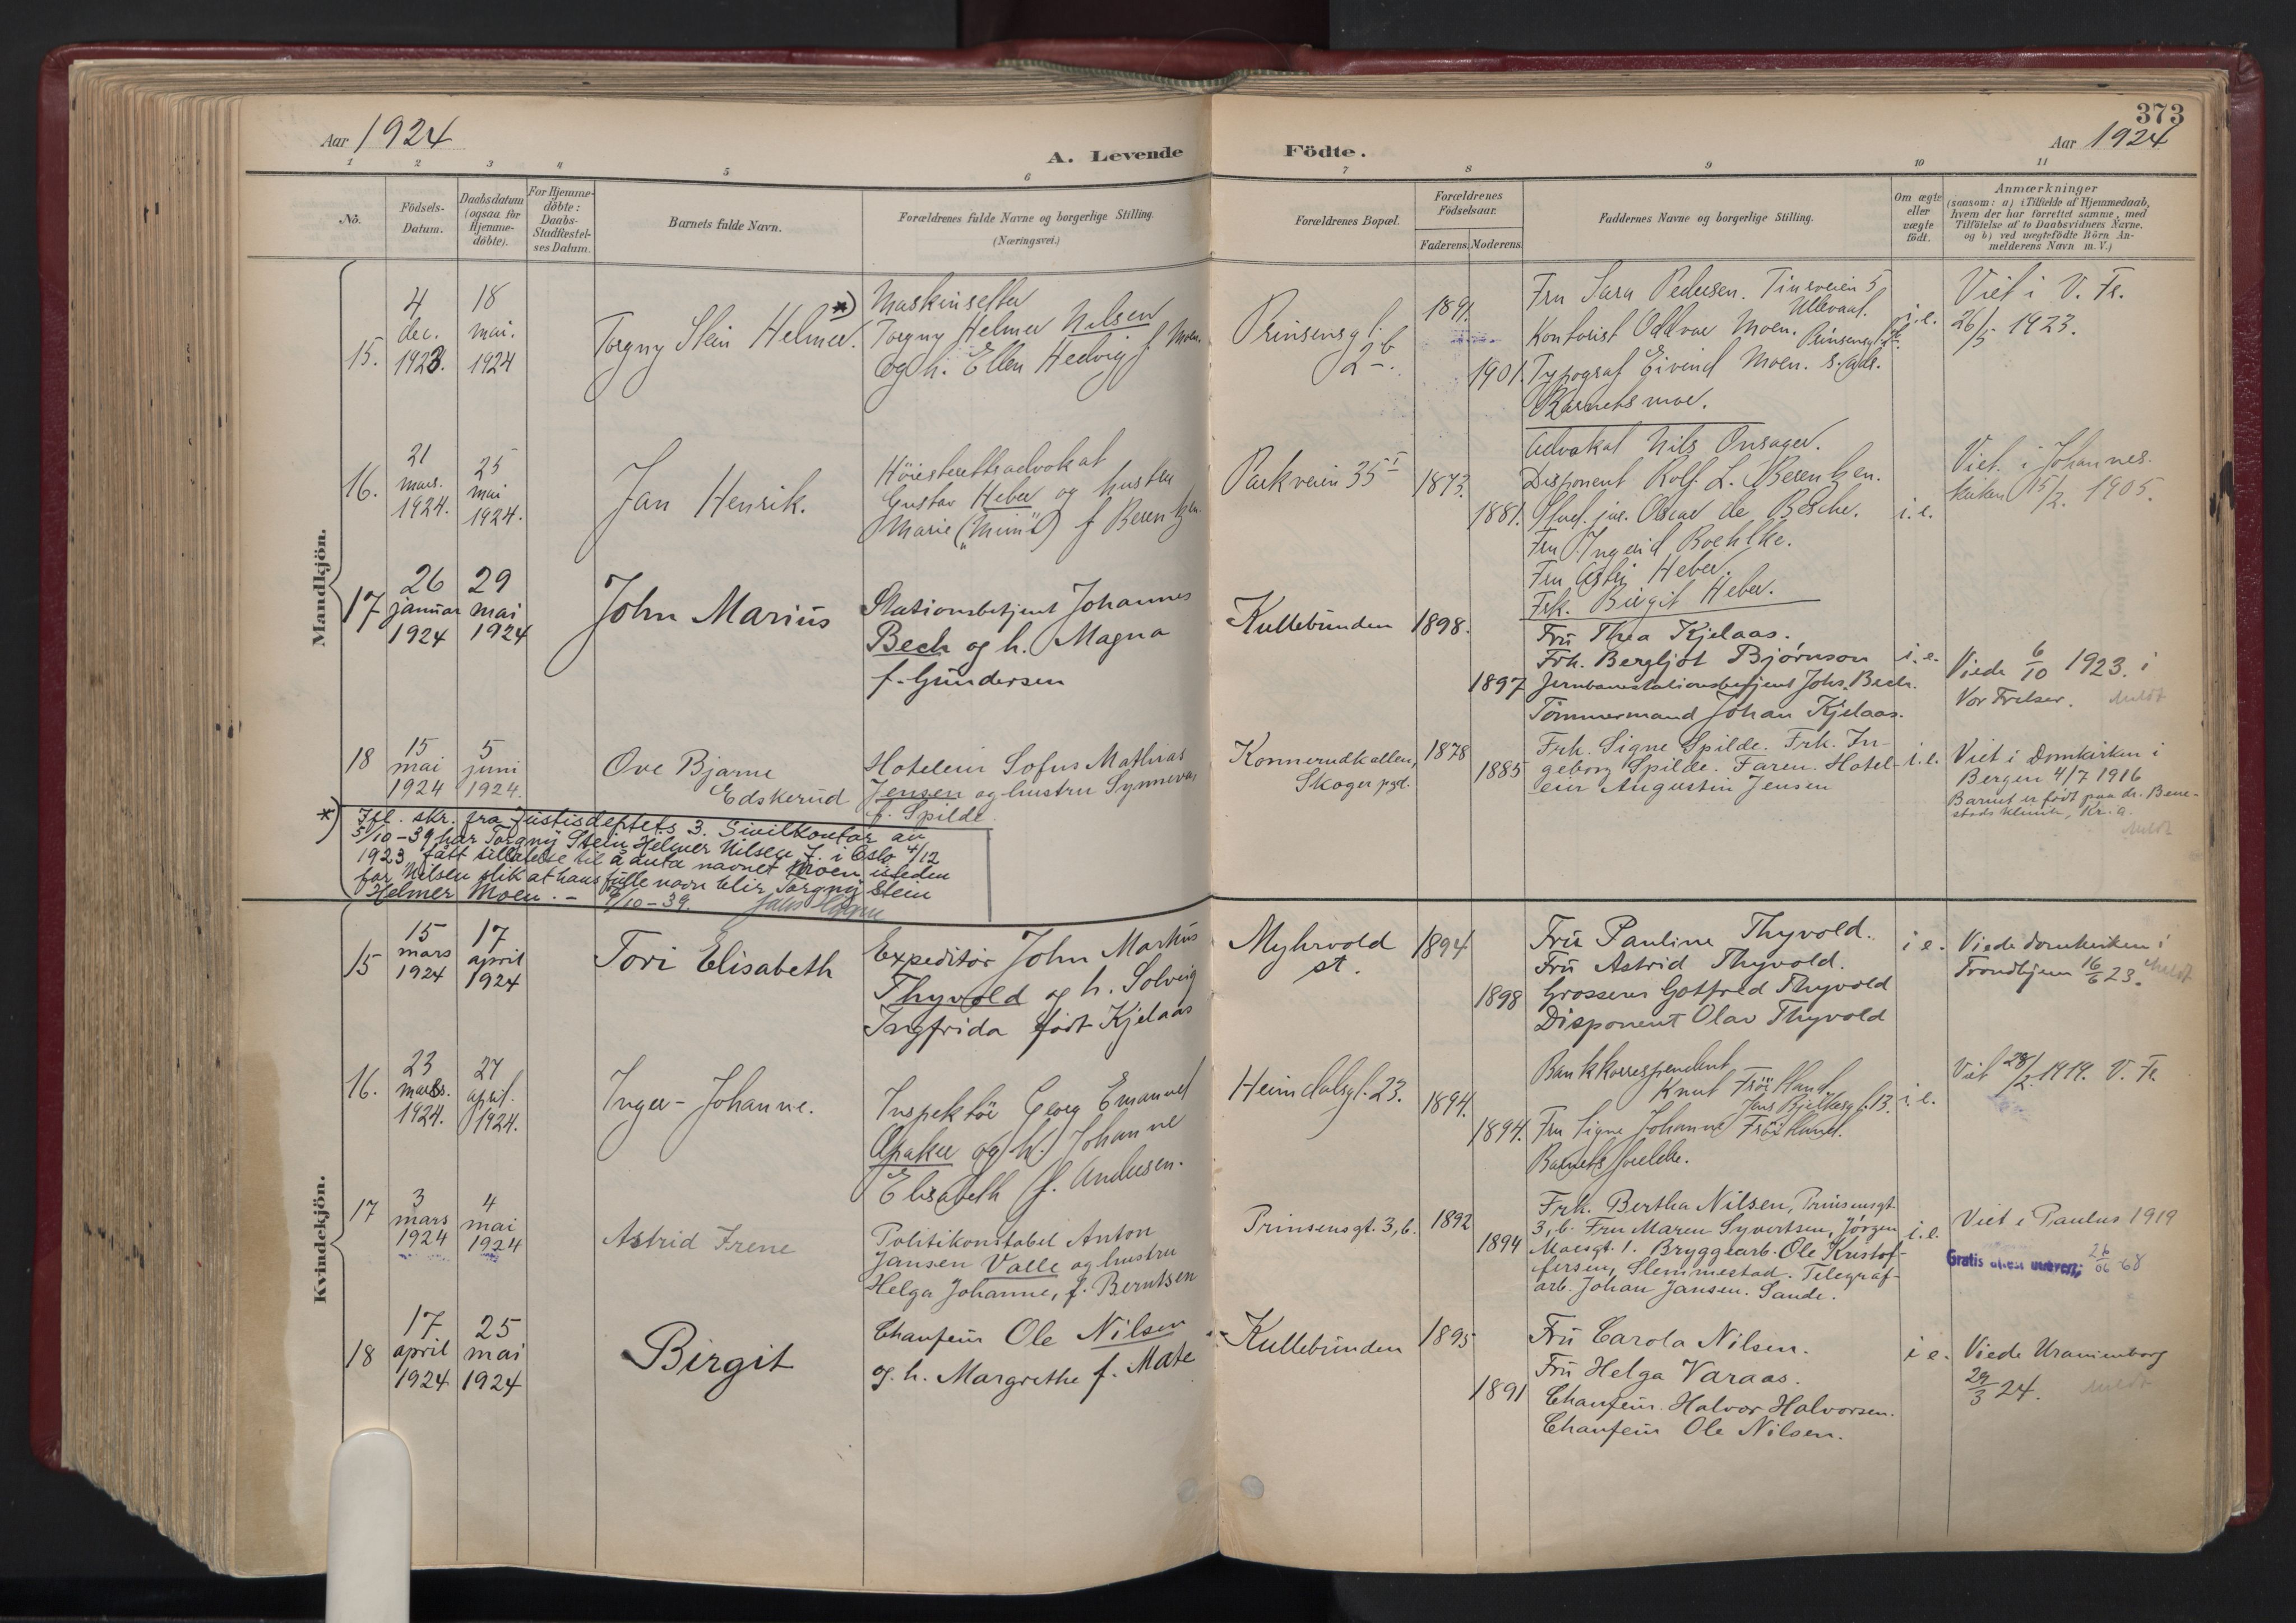 373
Aar 1924
A. Levende Födte.
Aar 1924
1 2 3 4 5 6 7 8 9 10 11
No.
Födsels-
Datum.
Daabsdatum
(ogsaa for
Hjemme-
döbte).
For Hjemme-
döbte:
Daabs-
Stadfæstel-
ses Datum.
Barnets fulde Navn.
Forældrenes fulde Navne og borgerlige Stilling.
(Næringsvei.)
Forældrenes Bopæl.
Forældrenes
Födselsaar.
Faderens. Moderens.
Faddernes Navne og borgerlige Stilling.
Om ægte
eller
uægte
födt.
Anmærkninger
(saasom: a) i Tilfælde af Hjemmedaab,
hvem der har forrettet samme, med
Tilföielse af to Daabsvidners Navne,
og b) ved uægtefödte Börn An-
melderens Navn m. V.)
Mandkjön.
15.
4
dec.
1923.
18
mai.
1924
Torgny Stein Helmer. *)
Maskinsetter
Torgny Helmer Nilsen
og h. Ellen Hedvig f. Moen.
Prinsensgt.
2 b.
1891.
1901.
Fru Sara Pedersen. Tinsveien 5
Ullevaal.
Kontorist Oddvar Moen. Prinsensgt. 2b.
Typograf Eivind Moen. s. adr.
Barnets mor.
i. e.
Viet i V. Fr.
26/5 1923.
16.
21
mars.
1924.
25
mai
1924.
Jan Henrik.
Höiesterettsadvokat
Gustav Heber og hustru
Marie ("Mimi") f Berentzen.
Parkveien 35 I
1873.
1881.
Advokat Nils Onsager.
Disponent Rolf L. Berentzen.
Stud. jur. Oscar de Besche.
Fru Ingerid Boehlke.
Fru Heber.
Frk. Birgit Heber.
i. e.
Viet. i Johannes.
kirken 15/2. 1905.
17
26
januar
1924
29
mai
1924
John Marius
Stationsbetjent Johannes
Bech og h. Magna
f. Gundersen
Kullebunden
1898.
1897
Fru Thea Kjelaas.
Frk. Bergljot Bjørnson
Jernbanestationsbetjent Johs. Bech.
Tömmermand Johan Kjelaas.
i. e.
Viede 6/10 1923. i
Vor Frelser. Meldt
18
15
mai
1924
5
juni
1924.
Ove Bjarne
Edskerud
Hoteleier Sofus Mathias
Jensen og hustru Synneva,
f. Spilde.
Konnerudkollen,
Skoger pgd.
1878
1885
Frk. Signe Spilde. Frk. In-
geborg Spilde. Faren. Hotel-
eier Augustin Jensen
i. e.
Viet i Domkirken i
Bergen 4/7 1916
Barnet er født paa dr. Bene-
stads klinik, Kr.a.
Meldt
*) Ifl. skr. fra Justisdeptets 3. Sivilkontor av
5/10-39 har Torgny Stein Helmer Nilsen, f. i Oslo 4/12
1923 fått tillatelse til å anta navnet Moen isteden
for Nilsen slik at hans fulle navn blir Torgny Stein
Helmer Moen. - 9/10-39.
Kvindekjön.
15
15
mars
1924
17
april
1924
Tori Elisabeth
Expeditør John Markus
Thyvold og h. Solveig
Ingfrida født Kjelaas
Myhrvold
st.
1894
1898
Fru Pauline Thyvold.
Fru Astrid Thyvold.
Grosserer Gotfred Thyvold
Disponent Olav Thyvold
i e.
Viede domkirken i
Trondhjem 16/6 23. Meldt
16.
23
mars.
1924.
27
april.
1924.
Inger-Johanne.
Inspektör Georg Emanuel
Aaker og h. Johanne
Elisabeth f. Andersen.
Heimdalsgt. 23.
1894.
1894.
Bankkorrespondent
Knut Fröiland
Jens Bjelkesgt. 13.
Fru Signe Johanne Fröiland.
Barnets forældre.
i. e.
Viet 28/2 1919. V. Fr.
17
3
mars
1924
4
mai
1924
Astrid Irene
Politikonstabel Anton
Jansen Valle og hustru
Helga Johanne, f. Berntsen
Prinsensgt. 3, b.
1892
1894
Frk. Bertha Nilsen, Prinsensgt.
3, b. Fru Maren Syvertsen, Jørgen
Moesgt. 1. Bryggearb. Ole Kristof-
fersen, Slemmestad. Telegraf-
arb. Johan Jansen. Sande.
i. e.
Viet i Paulus 1919
Gratis attest utlevert 26/06-68
18
17
april
1924
25
mai
1924
Birgit
Chauffeur Ole Nilsen
og h. Margrethe f. Mate
Kullebunden
1895
1891
Fru Carola Nilsen.
Fru Helga Varaas.
Chaufeur Halvor Halvorsen.
Chaufeur Ole Nilsen.
i e.
Viede Uranienborg
29/3 24. Meldt